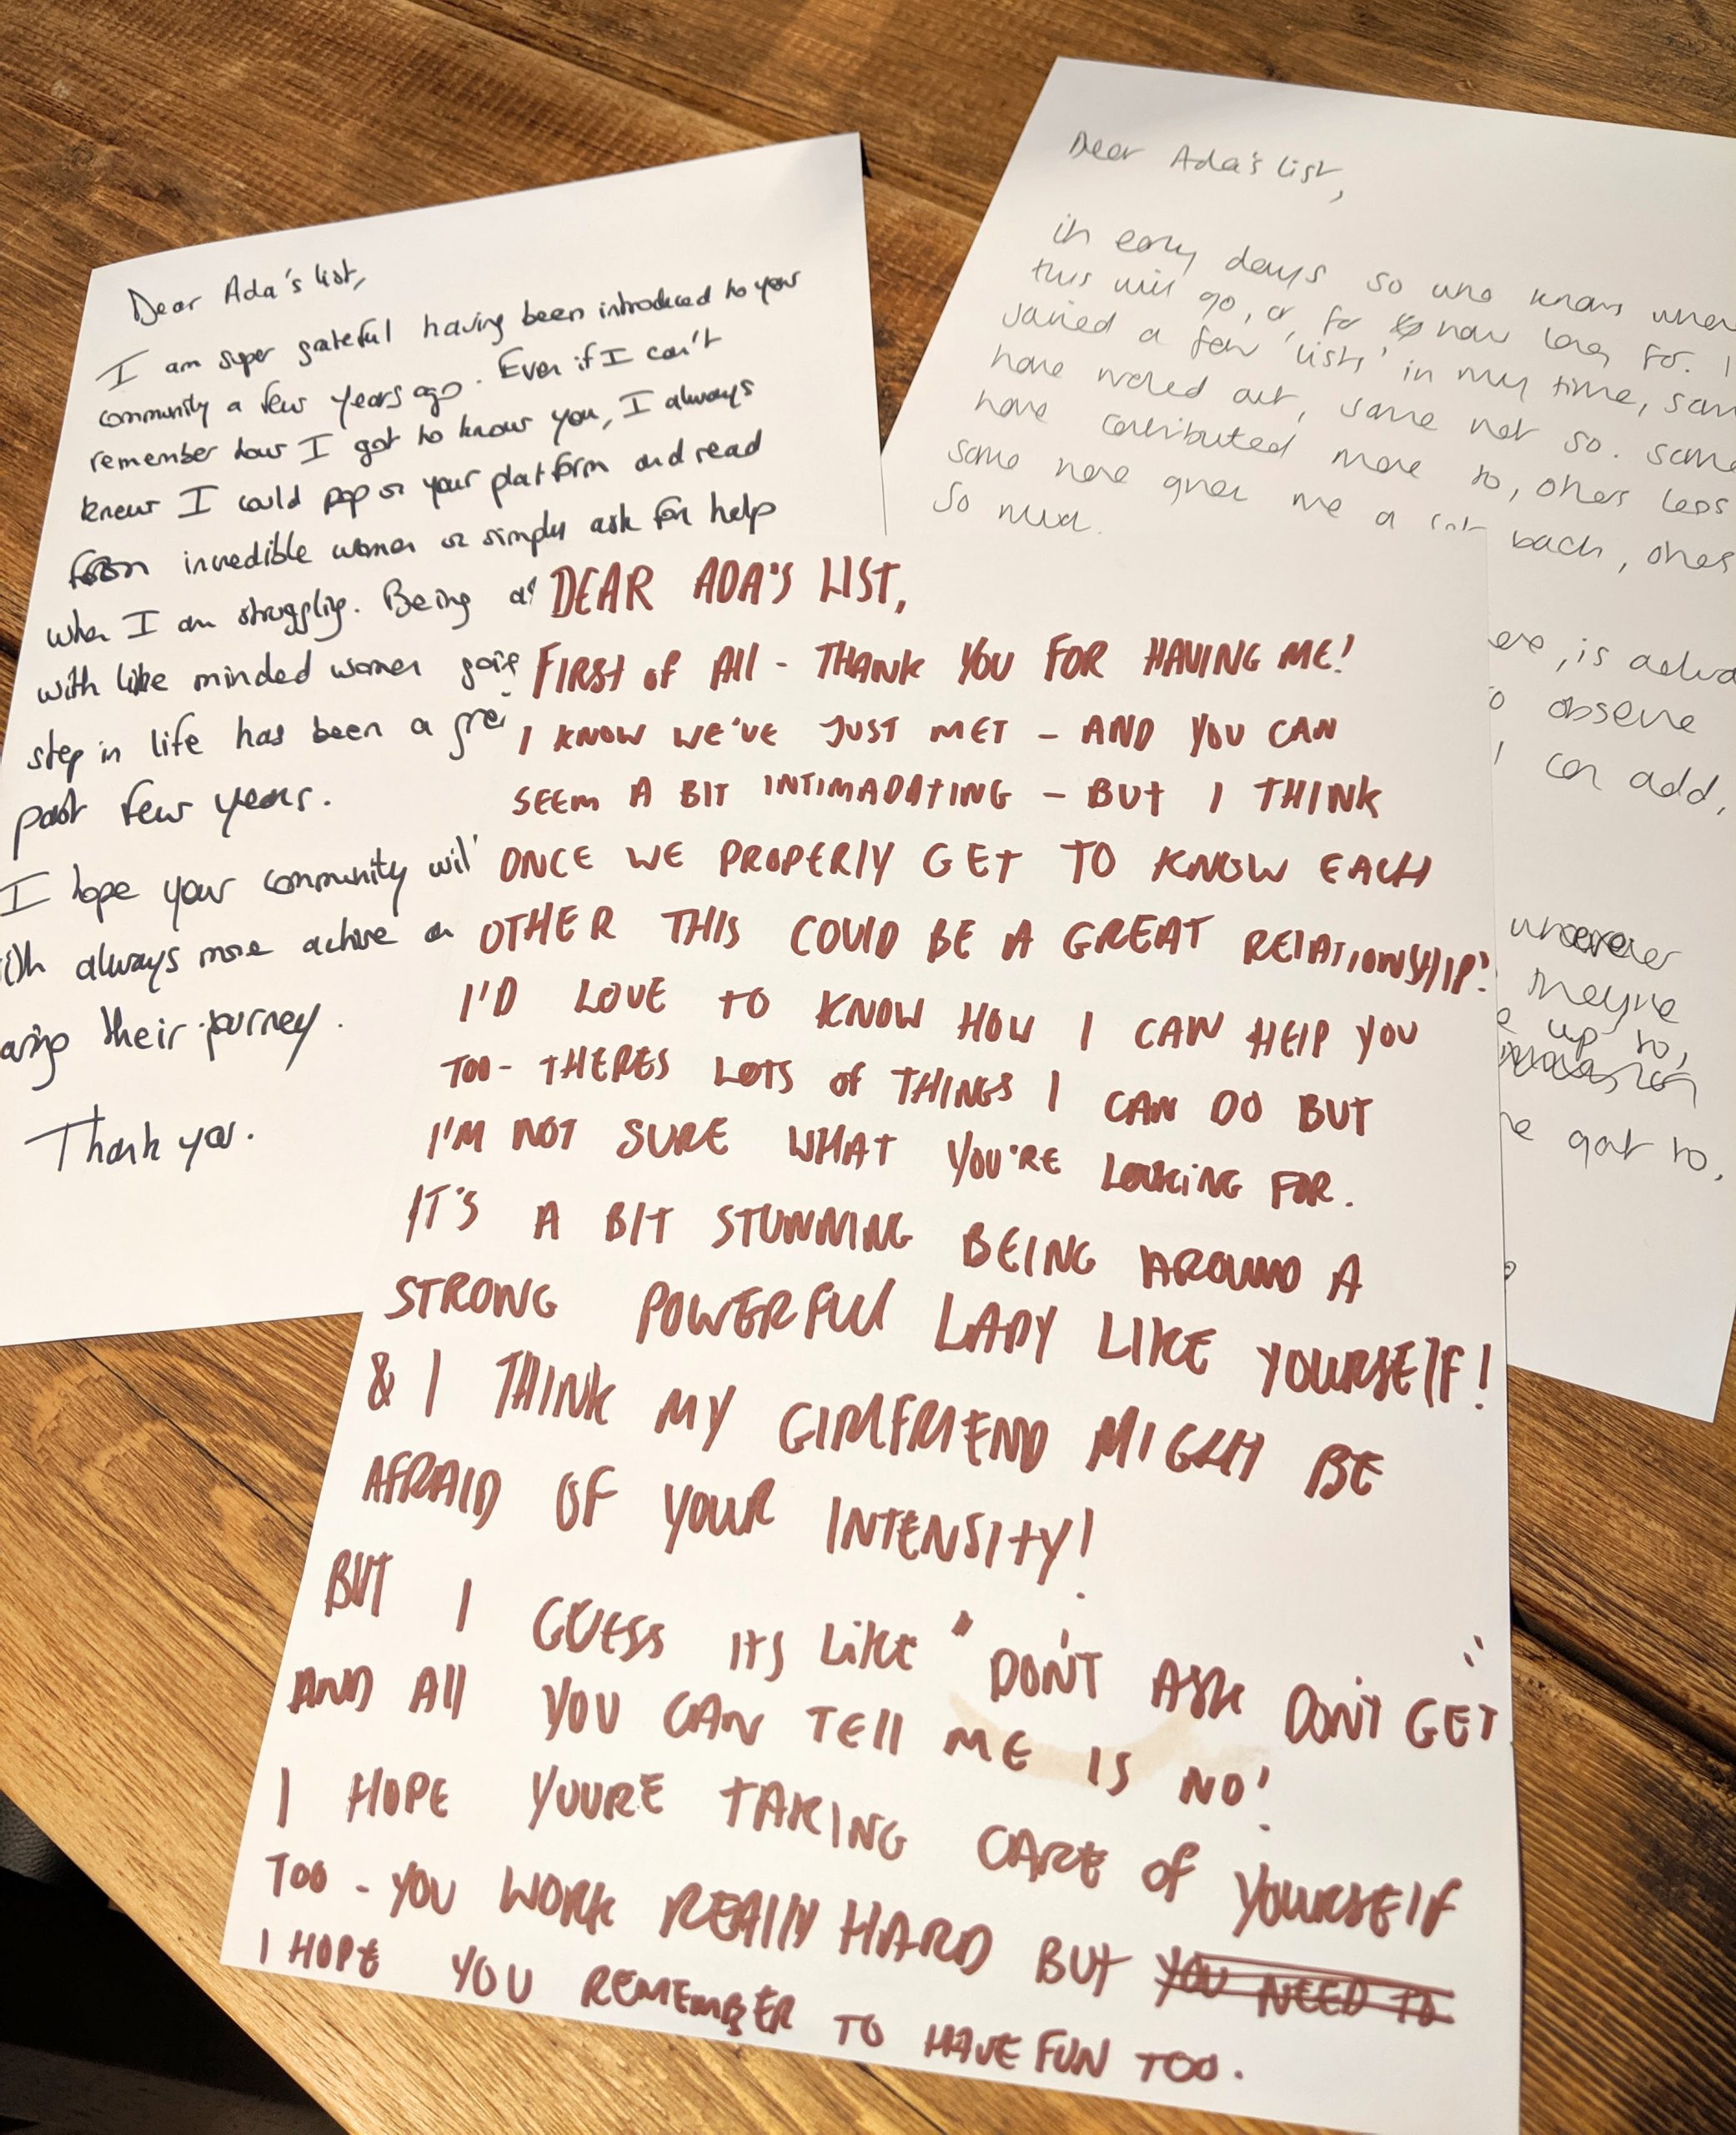 Dear Ada's list,
I am super grateful having been introduced to your
community a few years ago. Even if I can't
remember how I got to know you, I always
knew I could pop on your platform and read
from incredible women or simply ask for help
when I am struggling. Being a
with like minded women
step in life has been a
past few years.
I hope your community
always more active
their journey.
Thank you.
Dear Ada's list,
in early days so who knows
this will go, or for how long for. I
joined a few 'lists' in my time,
have worked out, some not so. some
have contributed more to, others less
some have given me a lot back, others
so much.
, is
observe
I can add,
wherever
they're
up to,
got to,
DEAR ADA'S LIST,
FIRST OF All - THANK YOU FOR HAVING ME!
I KNOW WE'VE JUST MET - AND YOU CAN
SEEM A BIT INTIMADATING - BUT I THINK
ONCE WE PROPERLY GET TO KNOW EACH
OTHER THIS COULD BE A GREAT RELATIONSHIP!
I'D LOVE TO KNOW HOW I CAN HELP YOU
TOO - THERES LOTS OF THINGS I CAN DO BUT
I'M NOT SURE WHAT YOU'RE LOOKING FOR.
IT'S A BIT STUNNING BEING AROUND A
STRONG POWERFUL LADY LIKE YOURSELF!
& I THINK MY GIRLFRIEND MIGHT BE
AFRAID OF YOUR INTENSITY!
BUT I GUESS ITS LIKE "DON'T ASK DON'T GET"
AND All YOU CAN TELL ME IS NO!
I HOPE YOURE TAKING CARE OF YOURSELF
TOO - YOU WORK REALLY HARD BUT YOU NEED TO
I HOPE YOU REMEMBER TO HAVE FUN TOO.